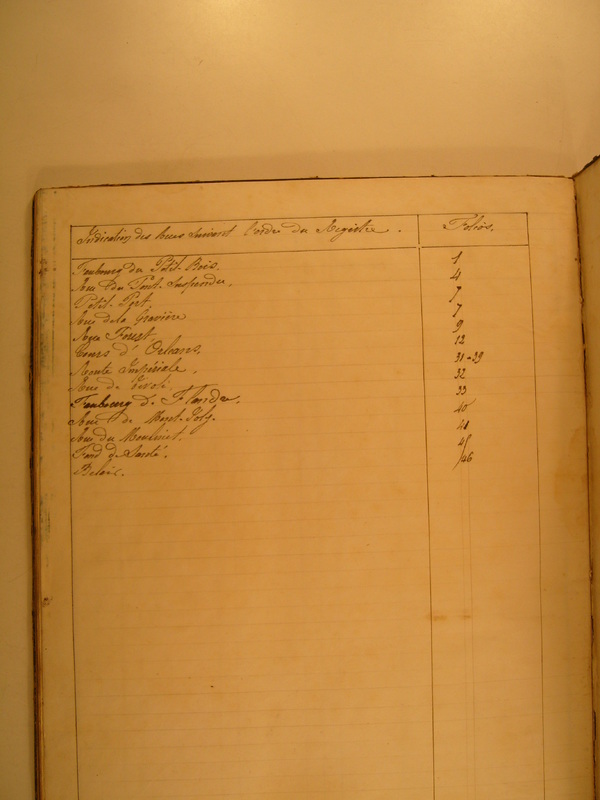 Indication des Rues suivant l'ordre du Registre. Folios.
Faubourg du Petit-Bois. 1
Rue du Pont-Suspendu. 4
Petit-Port. 7
Rue de la Gravière 7
Rue Forest. 9
Cours d'Orléans. 13
Route Impériale. 31-39
Rue de Rivoli. 32
Faubourg de Flandre. 33
Rue de Mont-Joly. 40
Rue du Moulinet. 41
Fond de Santé. 45
Relais. 46